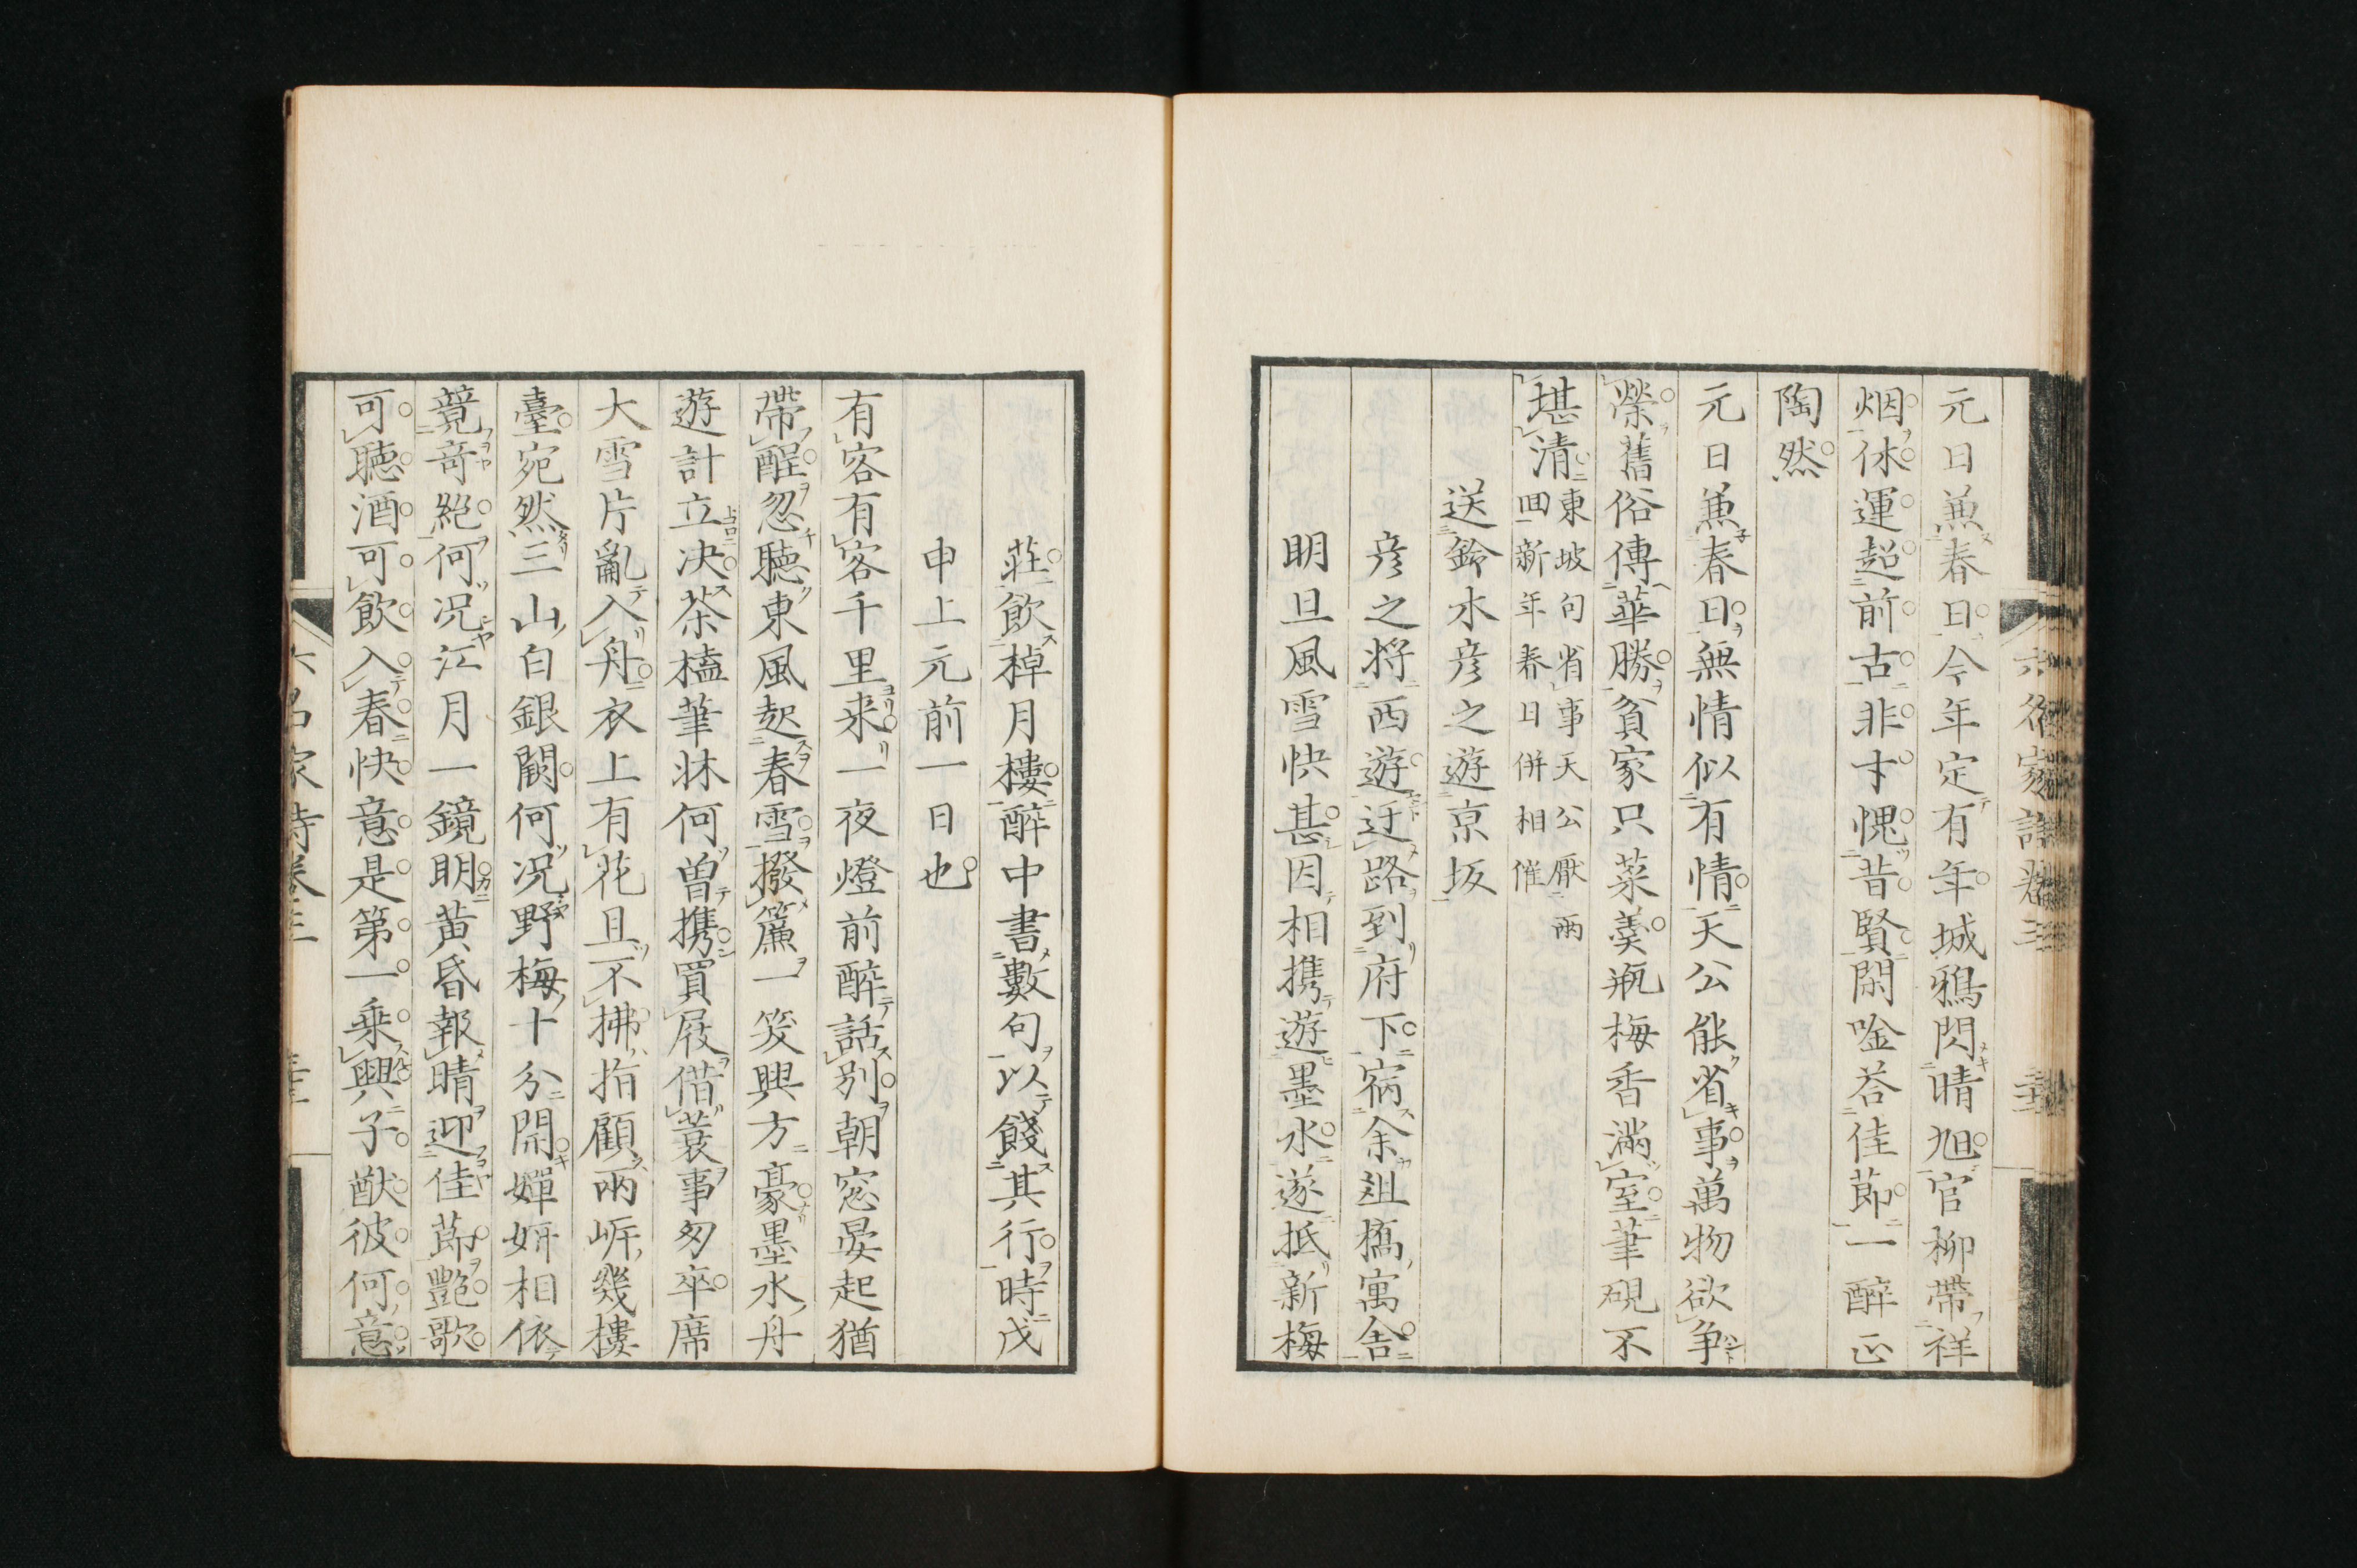 元日兼春日今年定有年城鴉閃晴旭官柳帶祥
烟休運超前古非才愧昔賢閑唫荅佳節一醉正
陶然
元日兼春日無情似有情天公能省事萬物欲爭
榮舊俗傳華勝貧家只菜羹瓶梅香滿室筆硯不
堪清
東坡句省事天公厭兩
回新年春日併相催
送鈴木彦之遊京坂
彦之將西遊迂路到府下宿余䢐橋寓舍
明旦風雪快甚因相携遊墨水遂抵新梅
莊飲棹月樓醉中書數句以餞其行時戊
申上元前一日也
有客有客千里來一夜燈前醉話別朝窓晏起猶
帶醒忽聽東風起春雪撥簾一笑興方豪墨水舟
遊計立决茶榼筆牀何曽携買屐借蓑事匆卒席
大雪片亂入舟衣上有花且不拂指顧兩岍幾樓
臺宛然三山白銀闕何况野梅十分開嬋妍相依
競奇絕何况江月一鏡明黃昏報晴迎佳節艷歌
可聽酒可飲入春快意是第一乗興子猷彼何意